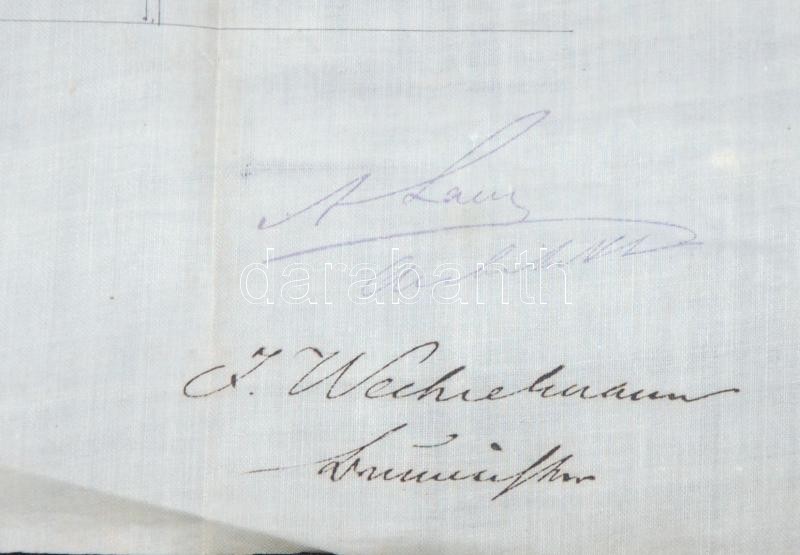 A. Lang
darabanth
I. Wechselmann
Baumeister